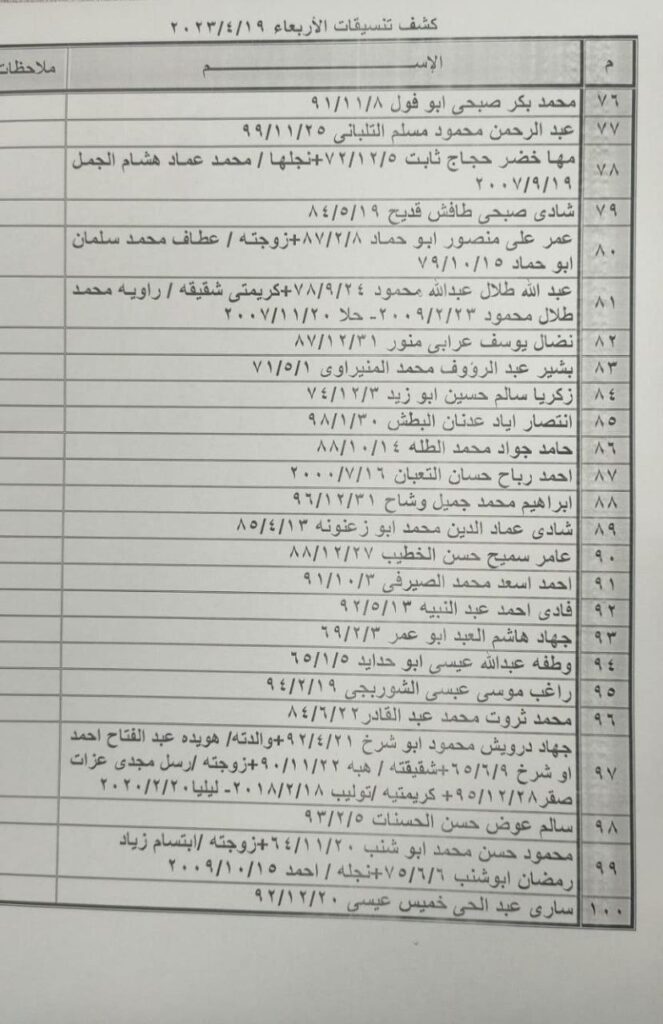 كشف تنسيقات الأربعاء ٢٠٢٣/٤/١٩
م الإســـــم ملاحظات
٧٦ محمد بكر صبحى ابو فول ٩١/١١/٨
٧٧ عبد الرحمن محمود مسلم التلبانى ٩٩/١١/٢٥
٧٨ مها خضر حجاج ثابت ٧٢/١٢/٥+نجلها / محمد عماد هشام الجمل
٢٠٠٧/٩/١٩
٧٩ شادى صبحى طافش قديح ٨٤/٥/١٩
٨٠ عمر على منصور ابو حماد ٨٧/٢/٨+زوجته / عطاف محمد سلمان
ابو حماد ٧٩/١٠/١٥
٨١ عبد الله طلال عبدالله محمود ٧٨/٩/٢٤+كريمتى شقيقه / راويه محمد
طلال محمود ٢٠٠٩/٢/٢٣- حلا ٢٠٠٧/١١/٢٠
٨٢ نضال يوسف عرابى منور ٨٧/١٢/٣١
٨٣ بشير عبد الرؤوف محمد المنيراوى ٧١/٥/١
٨٤ زكريا سالم حسين ابو زيد ٧٤/١٢/٣
٨٥ انتصار اياد عدنان البطش ٩٨/١/٣٠
٨٦ حامد جواد محمد الطله ٨٨/١٠/١٤
٨٧ احمد رباح حسان التعبان ٢٠٠٠/٧/١٦
٨٨ ابراهيم محمد جميل وشاح ٩٦/١٢/٣١
٨٩ شادى عماد الدين محمد ابو زعنونه ٨٥/٤/١٣
٩٠ عامر سميح حسن الخطيب ٨٨/١٢/٢٧
٩١ احمد اسعد محمد الصيرفى ٩١/١٠/٣
٩٢ فادى احمد عبد النبيه ٩٢/٥/١٣
٩٣ جهاد هاشم العبد ابو عمر ٦٩/٢/٣
٩٤ وطفه عبدالله عيسى ابو حدايد ٦٥/١/٥
٩٥ راغب موسى عيسى الشوربجى ٩٤/٢/١٩
٩٦ محمد ثروت محمد عبد القادر ٨٤/٦/٢٢
٩٧ جهاد درويش محمود ابو شرخ ٩٢/٤/٢١+والدته/ هويده عبد الفتاح احمد
او شرخ ٦٥/٦/٩+شقيقته / هبه ٩٠/١١/٢٢+زوجته /رسل مجدى عزات
صقر٩٥/١٢/٢٨+ كريمتيه /توليب ٢٠١٨/٢/١٨- ليليا٢٠٢٠/٢/٢٠
٩٨ سالم عوض حسن الحسنات ٩٣/٢/٥
٩٩ محمود حسن محمد ابو شنب ٦٤/١١/٢٠+زوجته /ابتسام زياد
رمضان ابوشنب ٧٥/٦/٦+نجله / احمد ٢٠٠٩/١٠/١٥
١٠٠ سارى عبد الحى خميس عيسى ٩٢/١٢/٢٠